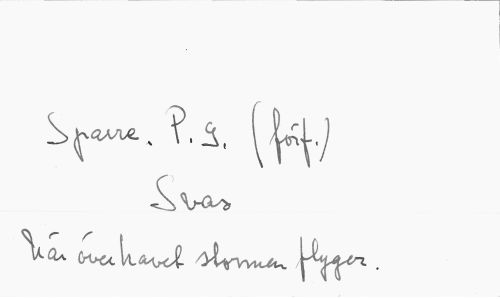 Sparre. P. G. (förf.)
Svar
När över havet stormen flyger.